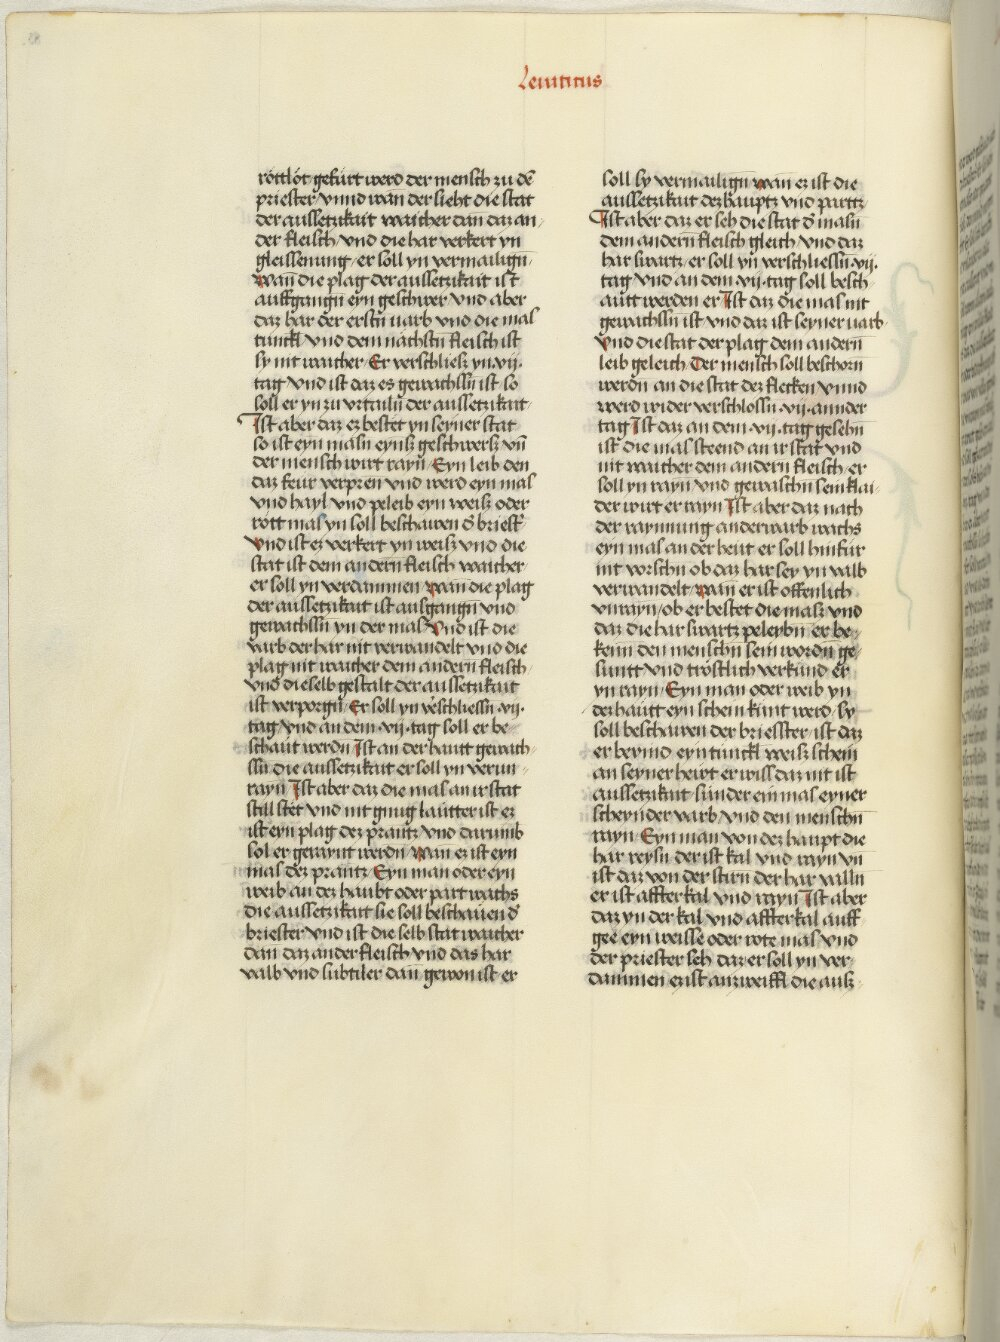 Leuiticus
röttlöt gefürt werd der mensch zu dē
priester vnnd wan der sieht die stat
der aussetzikait waicher dan daz an
der fleisch vnd die har verkert yn
gleissenung er soll yn vermailign
Wan̄ die plag der aussetzikait ist
auffgangn̄ eyn geschwer vnd aber
daz har der erstn̄ varb vnd die mal
tunckl vnd dem nächstn̄ fleisch ist
sy nit waicher Er verschliesz yn vij·
tag vnd ist daz es gewachssn̄ ist so
soll er yn zu vrtailn̄ der aussetzikait
Ist aber daz ez bestet yn seyner stat
so ist eyn masn̄ eynsz geschwersz vn̄
der mensch wirt rayn̄ Eyn leib den
daz feur verpren vnd werd eyn mas
vnd hayl vnd peleib eyn weisz oder
rott mas yn soll beschawen d̄ briest̄
Vnd ist ez verkert yn weisz vnd die
stat ist dem andern fleisch waicher
er soll yn verdammen wan̄ die plag
der aussetzikait ist ausgangn̄ vnd
gewachssn̄ yn der mas Vnd ist die
varb der har nit verwandelt vnd die
plag nit waicher dem andern fleisch
vnd dieselb gestalt der aussetzikait
ist verporgn̄ Er soll yn v̄schliessn̄ vij·
tag vnd an dem vij· tag soll er be-
schaut werdn̄ Ist an der hautt gewach-
ssn̄ die aussetzikait er soll yn verun-
rayn̄ Ist aber daz die mal an ir stat
still stet vnd nit gnug lautter ist ez
ist eyn plag dez prantz vnd darumb
sol er geraynt werdn̄ Wan ez ist eyn
mas dez prantz Eyn man oder eyn
weib an dez haubt oder part wachs
die aussetzikait sie soll beschauen d̄
briester vnd ist die selb stat waicher
dan̄ daz ander fleisch vnd das har
valb vnd subtiler dan̄ gewon ist er
soll sy vermailign wan ez ist die
aussetzikait dez hauptz vnd parttz
Ist aber daz er seh die stat d̄ masn̄
dem andern̄ fleisch gleich vnd daz
har swartz er soll yn verschliessn̄ vij·
tag vnd an dem vij· tag soll besch-
autt werden er Ist daz die mas nit
gewachssn̄ ist vnd daz ist seyner varb
Vnd die stat der plag dem andern̄
leib geleich Der mensch soll beschorn
werdn̄ an die stat dez flecken vnnd
werd wider verschlossn̄ vij· annder
tag Ist daz an dem vij· tag gesehn̄
ist die mal steend an ir stat vnd
nit waicher dem andern fleisch er
soll yn rayn̄ vnd gewaschn̄ sein klai-
der wirt er rayn Ist aber daz nach
der raynnung anderwarb wachs
eyn mas an der heut er soll hinfur
nit vorschn̄ ob daz har sey yn valb
verwandelt wan̄ er ist offenlich
vnrayn ob er bestet die masz vnd
daz die har swartz peleybn̄ er be-
kenn den menschn̄ sein wordn̄ ge-
suntt vnd tröstlich verkünd er
yn rayn Eyn man oder weib yn
dez hautt eyn schein kunt werd sy
soll beschawen der briesster ist daz
er beynnd eyn tunckl weisz schein̄
an seyner heutt er wiss daz nit ist
aussetzikait sunder ein mas eyner
scheynder varb vnd den menschn̄
rayn Eyn man von dez haupt die
har reysn̄ der ist kal vnd rayn vn̄
ist daz von der stirn der har valln̄
er ist affter kal vnd rayn Ist aber
daz yn der kal vnd affterkal auff
gee eyn weisse oder rote mas vnd
der priester seh daz er soll yn ver-
dammen ez ist anzweiffl die ausz